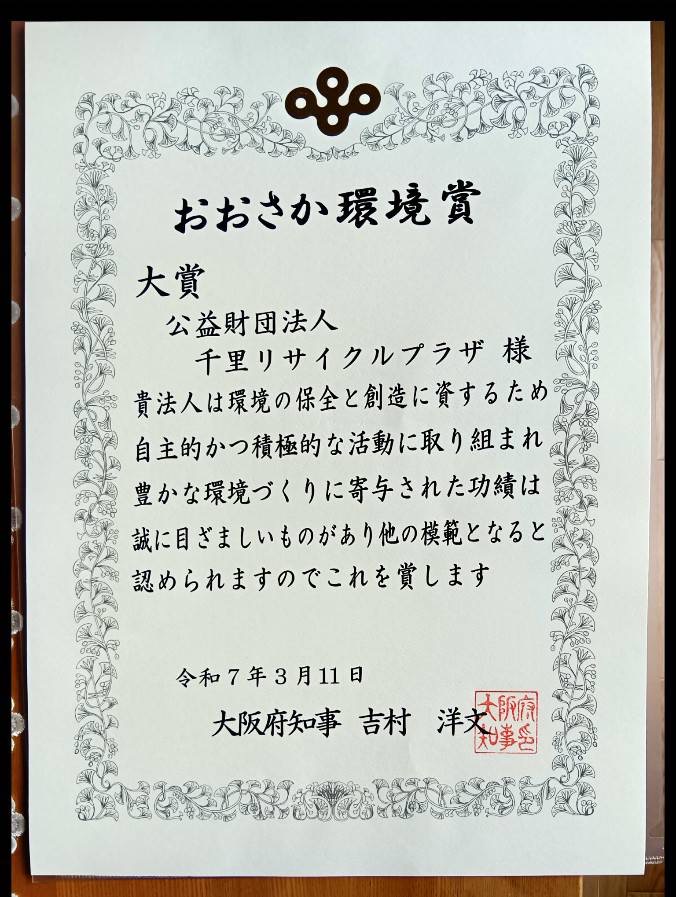 おおさか環境賞
大賞
公益財団法人
千里リサイクルプラザ 様
貴法人は環境の保全と創造に資するため
自主的かつ積極的な活動に取り組まれ
豊かな環境づくりに寄与された功績は
誠に目ざましいものがあり他の模範となると
認められますのでこれを賞します
令和7年3月11日
大阪府知事 吉村 洋文
大阪府
知事印